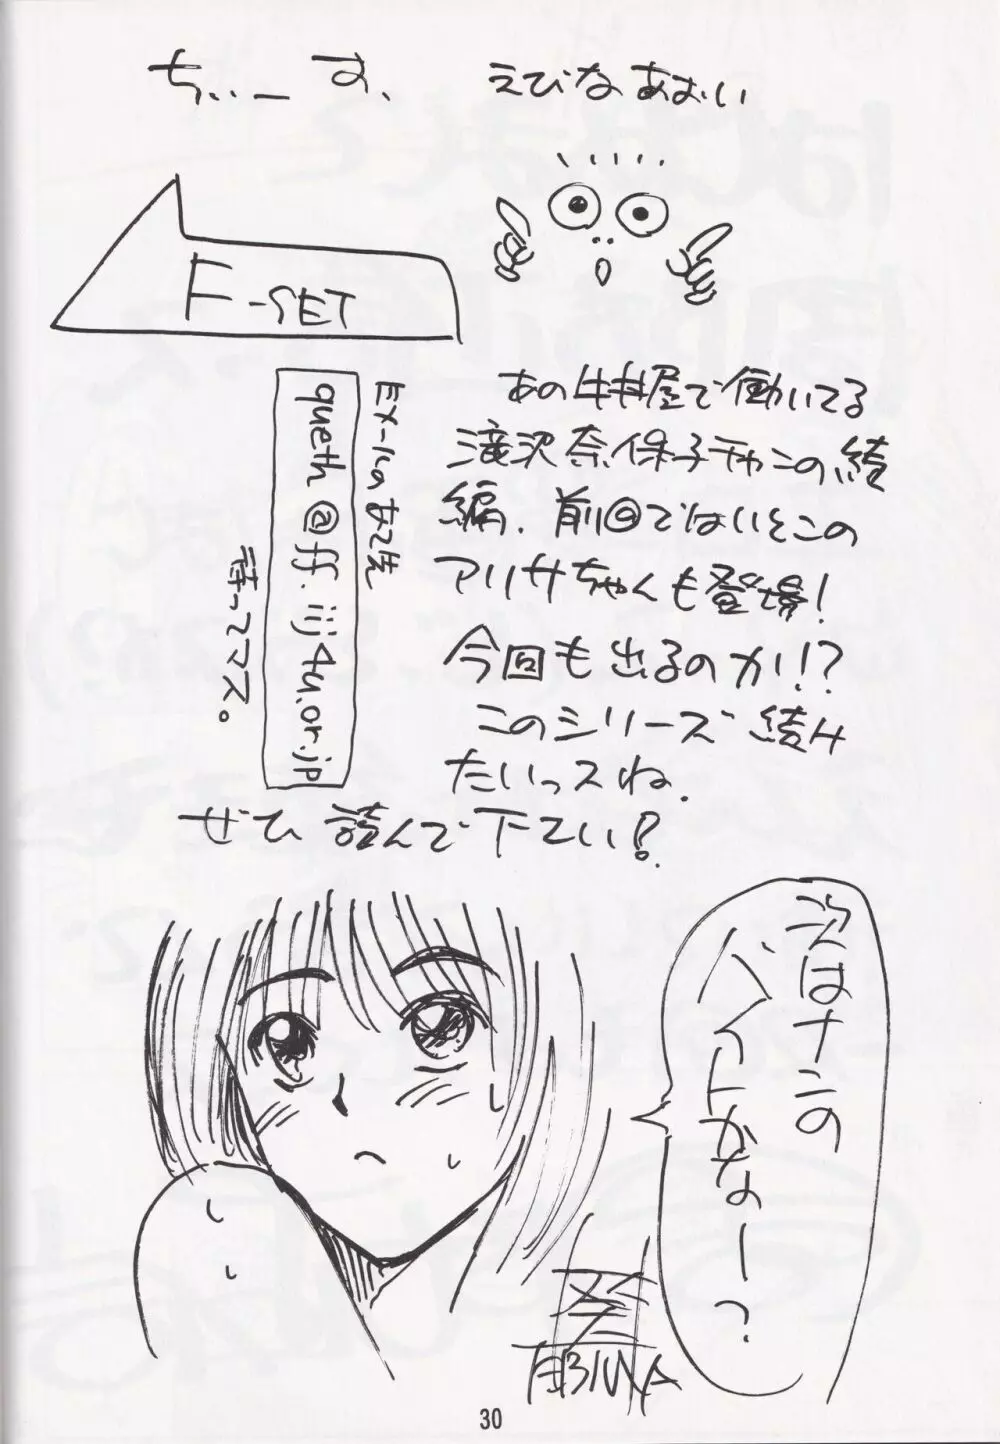 ちぃーす、
えびなあおい
F-SET
あの牛丼屋で働いてる
滝沢奈保子チャンの続
編．前回ではいとこの
アリサちゃんも登場！
今回も出るのか！？
このシリーズ続け
たいっスね．
ぜひ読んで下さい！
EX-ﾒｲﾙのあて先
queth@ff.iij4u.or.jp
待ってマス。
次はナンの
バイトかなー？
EBINA
30